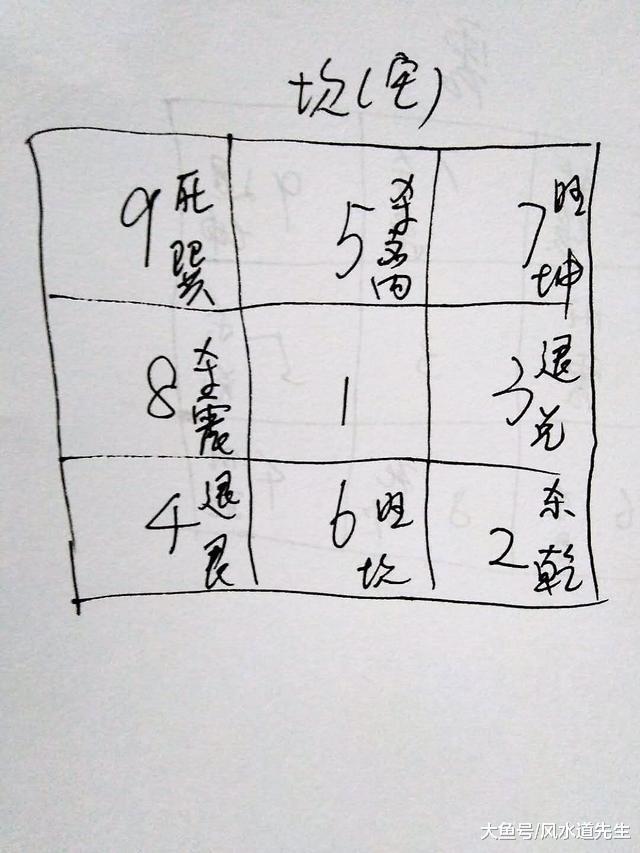 坎(宅)
9 死巽
5 杀离
7 旺坤
8 杀震
1
3 退兑
4 退艮
6 旺坎
2 杀乾
大鱼号/风水道先生